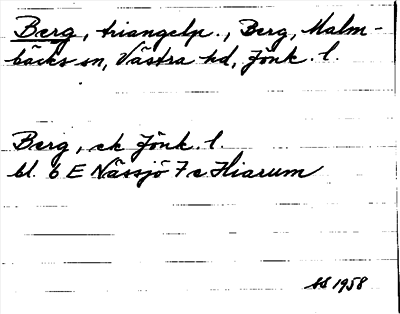 Berg, triangelp., Berg, Malm-
bäcks sn, Västra hd, Jönk. l.
Berg, ek Jönk. l.
bl. 6 E Nässjö 7 c Hiarum
1958